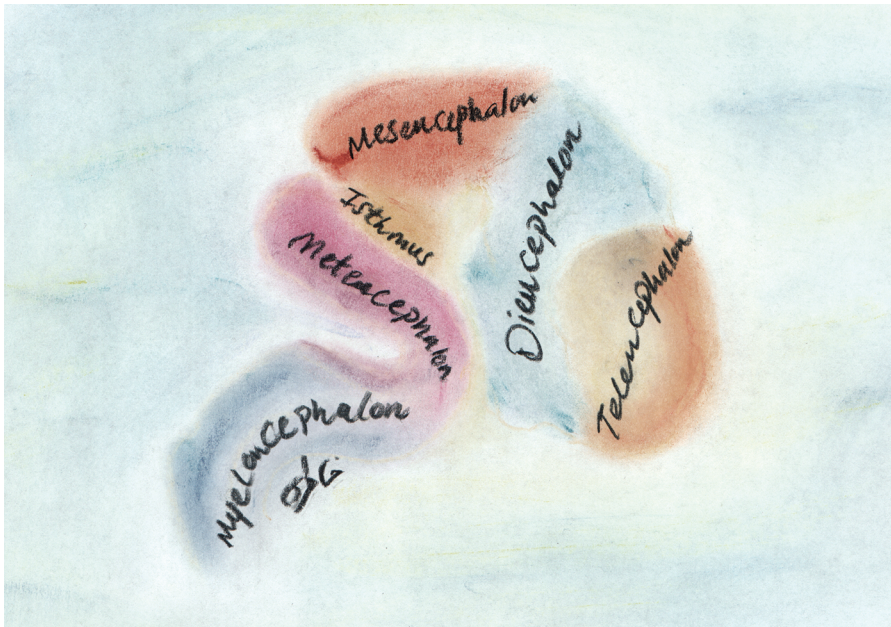 Mesencephalon
Isthmus
Metencephalon
Diencephalon
Telencephalon
Myelencephalon